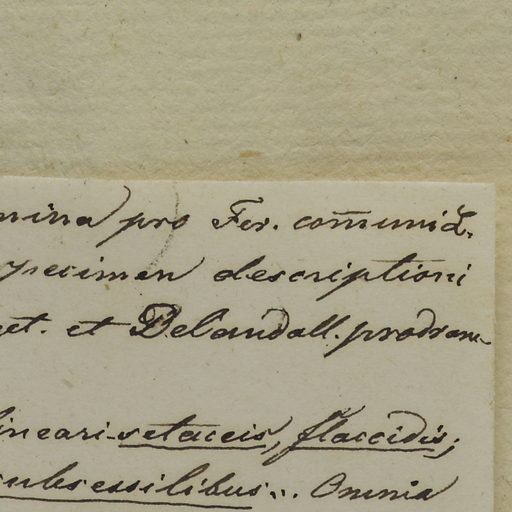 mina pro Fer. com̄unic̄.
specimen descriptioni
et. et Belandall. prodrom-
lineari-setaceis, flaccidis;
subsessilibus... Omnia